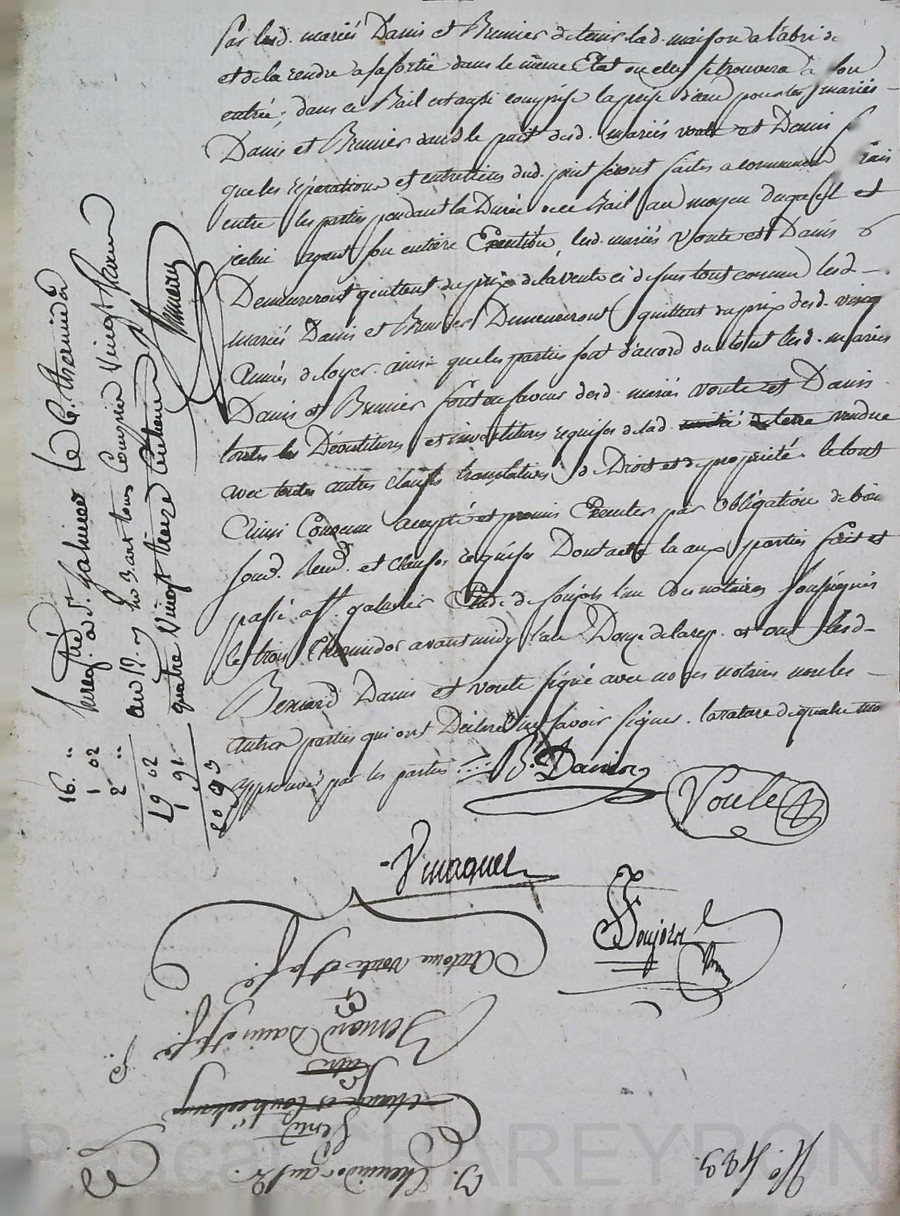 Par lesd. mariés Danis et Brunier de tenir lad. maison a l'abri de
et de la rendre a sa sortie dans le même Etat ou elle se trouvera à son
entrée; dans ce Bail est aussi comprise la prise d'eau pour les mariés
Danis et Brunier dans le puit desd. mariés voute et Danis
que les réparations et entretiens dud. puit seront faites a commun frais
entre les parties pendant la Durée de ce Bail au moyen duquel et
icelui ayant son entière Exécution, lesd. mariés Voute et Danis
Demeureront quittent du prix de la vente ci dessus tout comme lesd.
mariés Danis et Brunier Demeureront quittent du prix desd. vingt
Années de loyer. ainsi que les parties sont d'accord du tout lesd. mariés
Danis et Brunier font en faveur desd. mariés voute et Danis
toutes les Dévetitures et investitures requises de lad. terre vendue
avec toutes autres clauses translatives de Droit et de propriété. le tout
Ainsi Convenu accepté et promis Executer par obligation de biens
soum. Renon. et clauses requises Dont acte la aux parties fait et
passé a St. galmier Etude de soujols l'un des notaires soussignés
le trois thermidor avant midy l'an Douze de la rep. et ont lesd.
Bernard Danis et voute signé avec nous notaires non les
autres parties qui ont Déclaré ne savoir signer. la rature de quatre mots
approuvée par les parties
Bd. Danis
Voute
Vinaquel
Soujols
Enreg.tré a St. Galmier le 6. thermidor
an 12.
quatre Vingt treize Centimes
16. "
1 02
2 "
19 02
1 91
20 93
Antoine voute
Bernard Danis
3. Thermidor an 12.
N.º 423
Pascal CHAREYRON